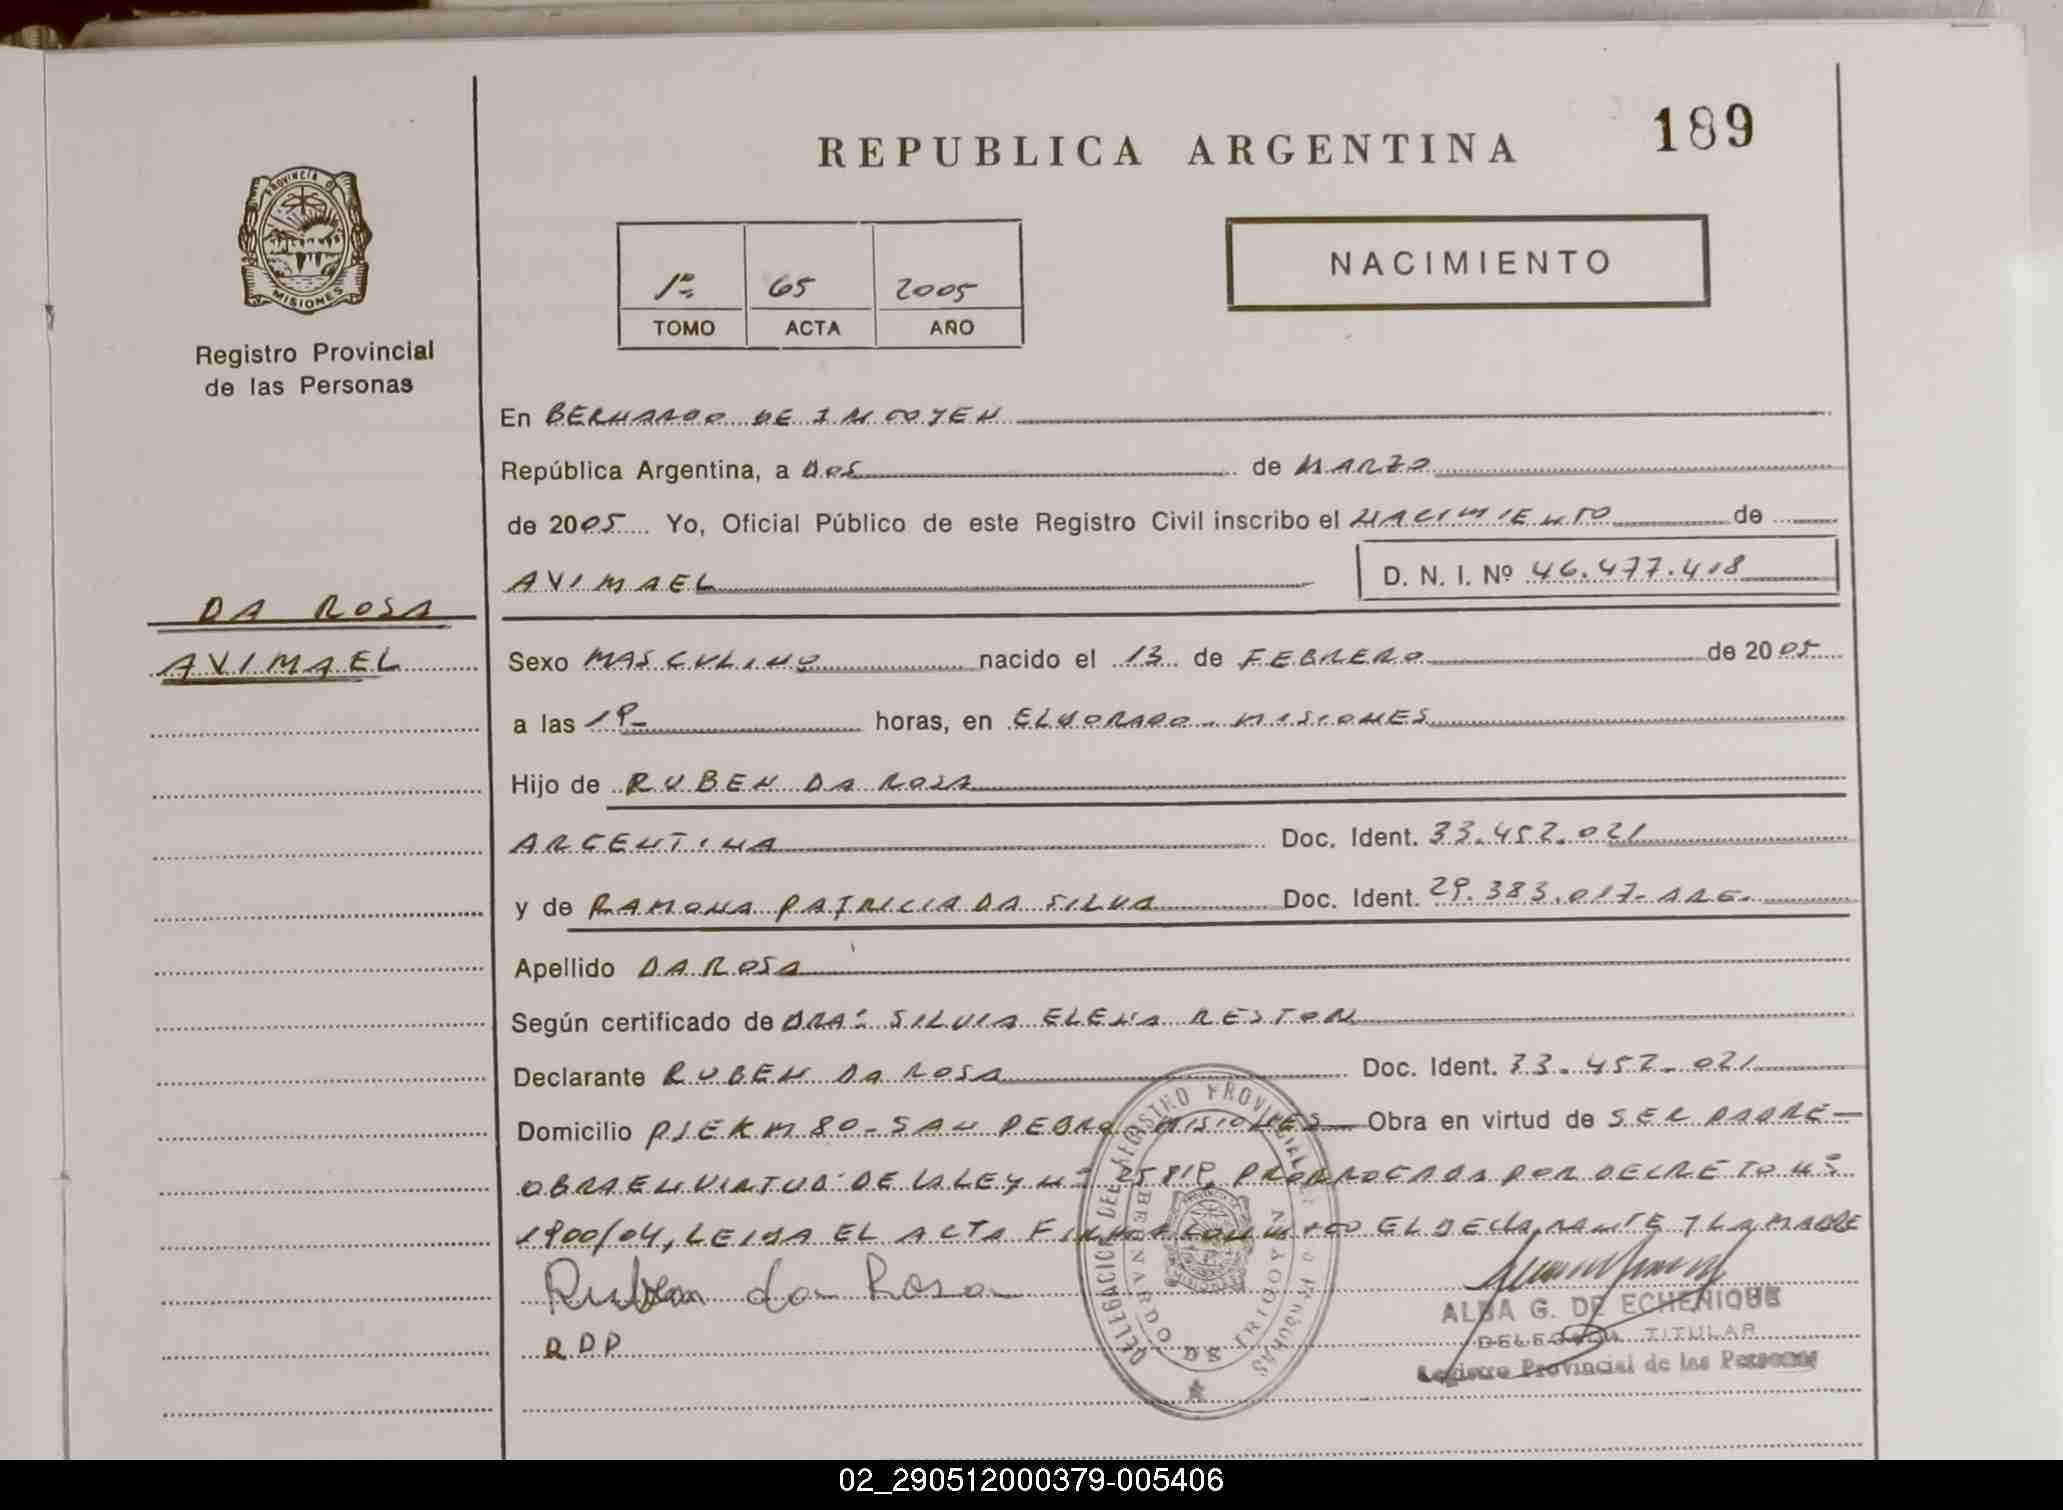 189
REPUBLICA ARGENTINA
PROVINCIA D
MISIONES
Registro Provincial
de las Personas
1º 65 2005
TOMO ACTA AÑO
NACIMIENTO
En BERNARDO DE IRIGOYEN
República Argentina, a DOS de MARZO
de 2005 Yo, Oficial Público de este Registro Civil inscribo el NACIMIENTO de
AVIMAEL D. N. I. Nº 46.477.418
DA ROSA
AVIMAEL
Sexo MASCULINO nacido el 13 de FEBRERO de 2005
a las 19 horas, en ELDORADO - MISIONES
Hijo de RUBEN DA ROSA
ARGENTINA Doc. Ident. 33.452.021
y de RAMONA PATRICIA DA SILVA Doc. Ident. 29.383.017- ARG.
Apellido DA ROSA
Según certificado de DRA: SILVIA ELENA RESTON
Declarante RUBEN DA ROSA Doc. Ident. 33.452.021
Domicilio PJE KM 80 - SAN PEDRO MISIONES Obra en virtud de SER PADRE
OBRA EN VIRTUD DE LA LEY Nº 25819, PRORROGADA POR DECRETO Nº
1900/04, LEIDA EL ACTA FIRMA CONMIGO EL DECLARANTE Y LA MADRE
Ruben da Rosa
RDP
DELEGACIO DEL REGISTRO PROVINCIAL DE PERSONAS
BERNARDO DE IRIGOYEN
ALBA G. DE ECHENIQUE
DELEGADA TITULAR
Registro Provincial de las Personas
02_290512000379-005406